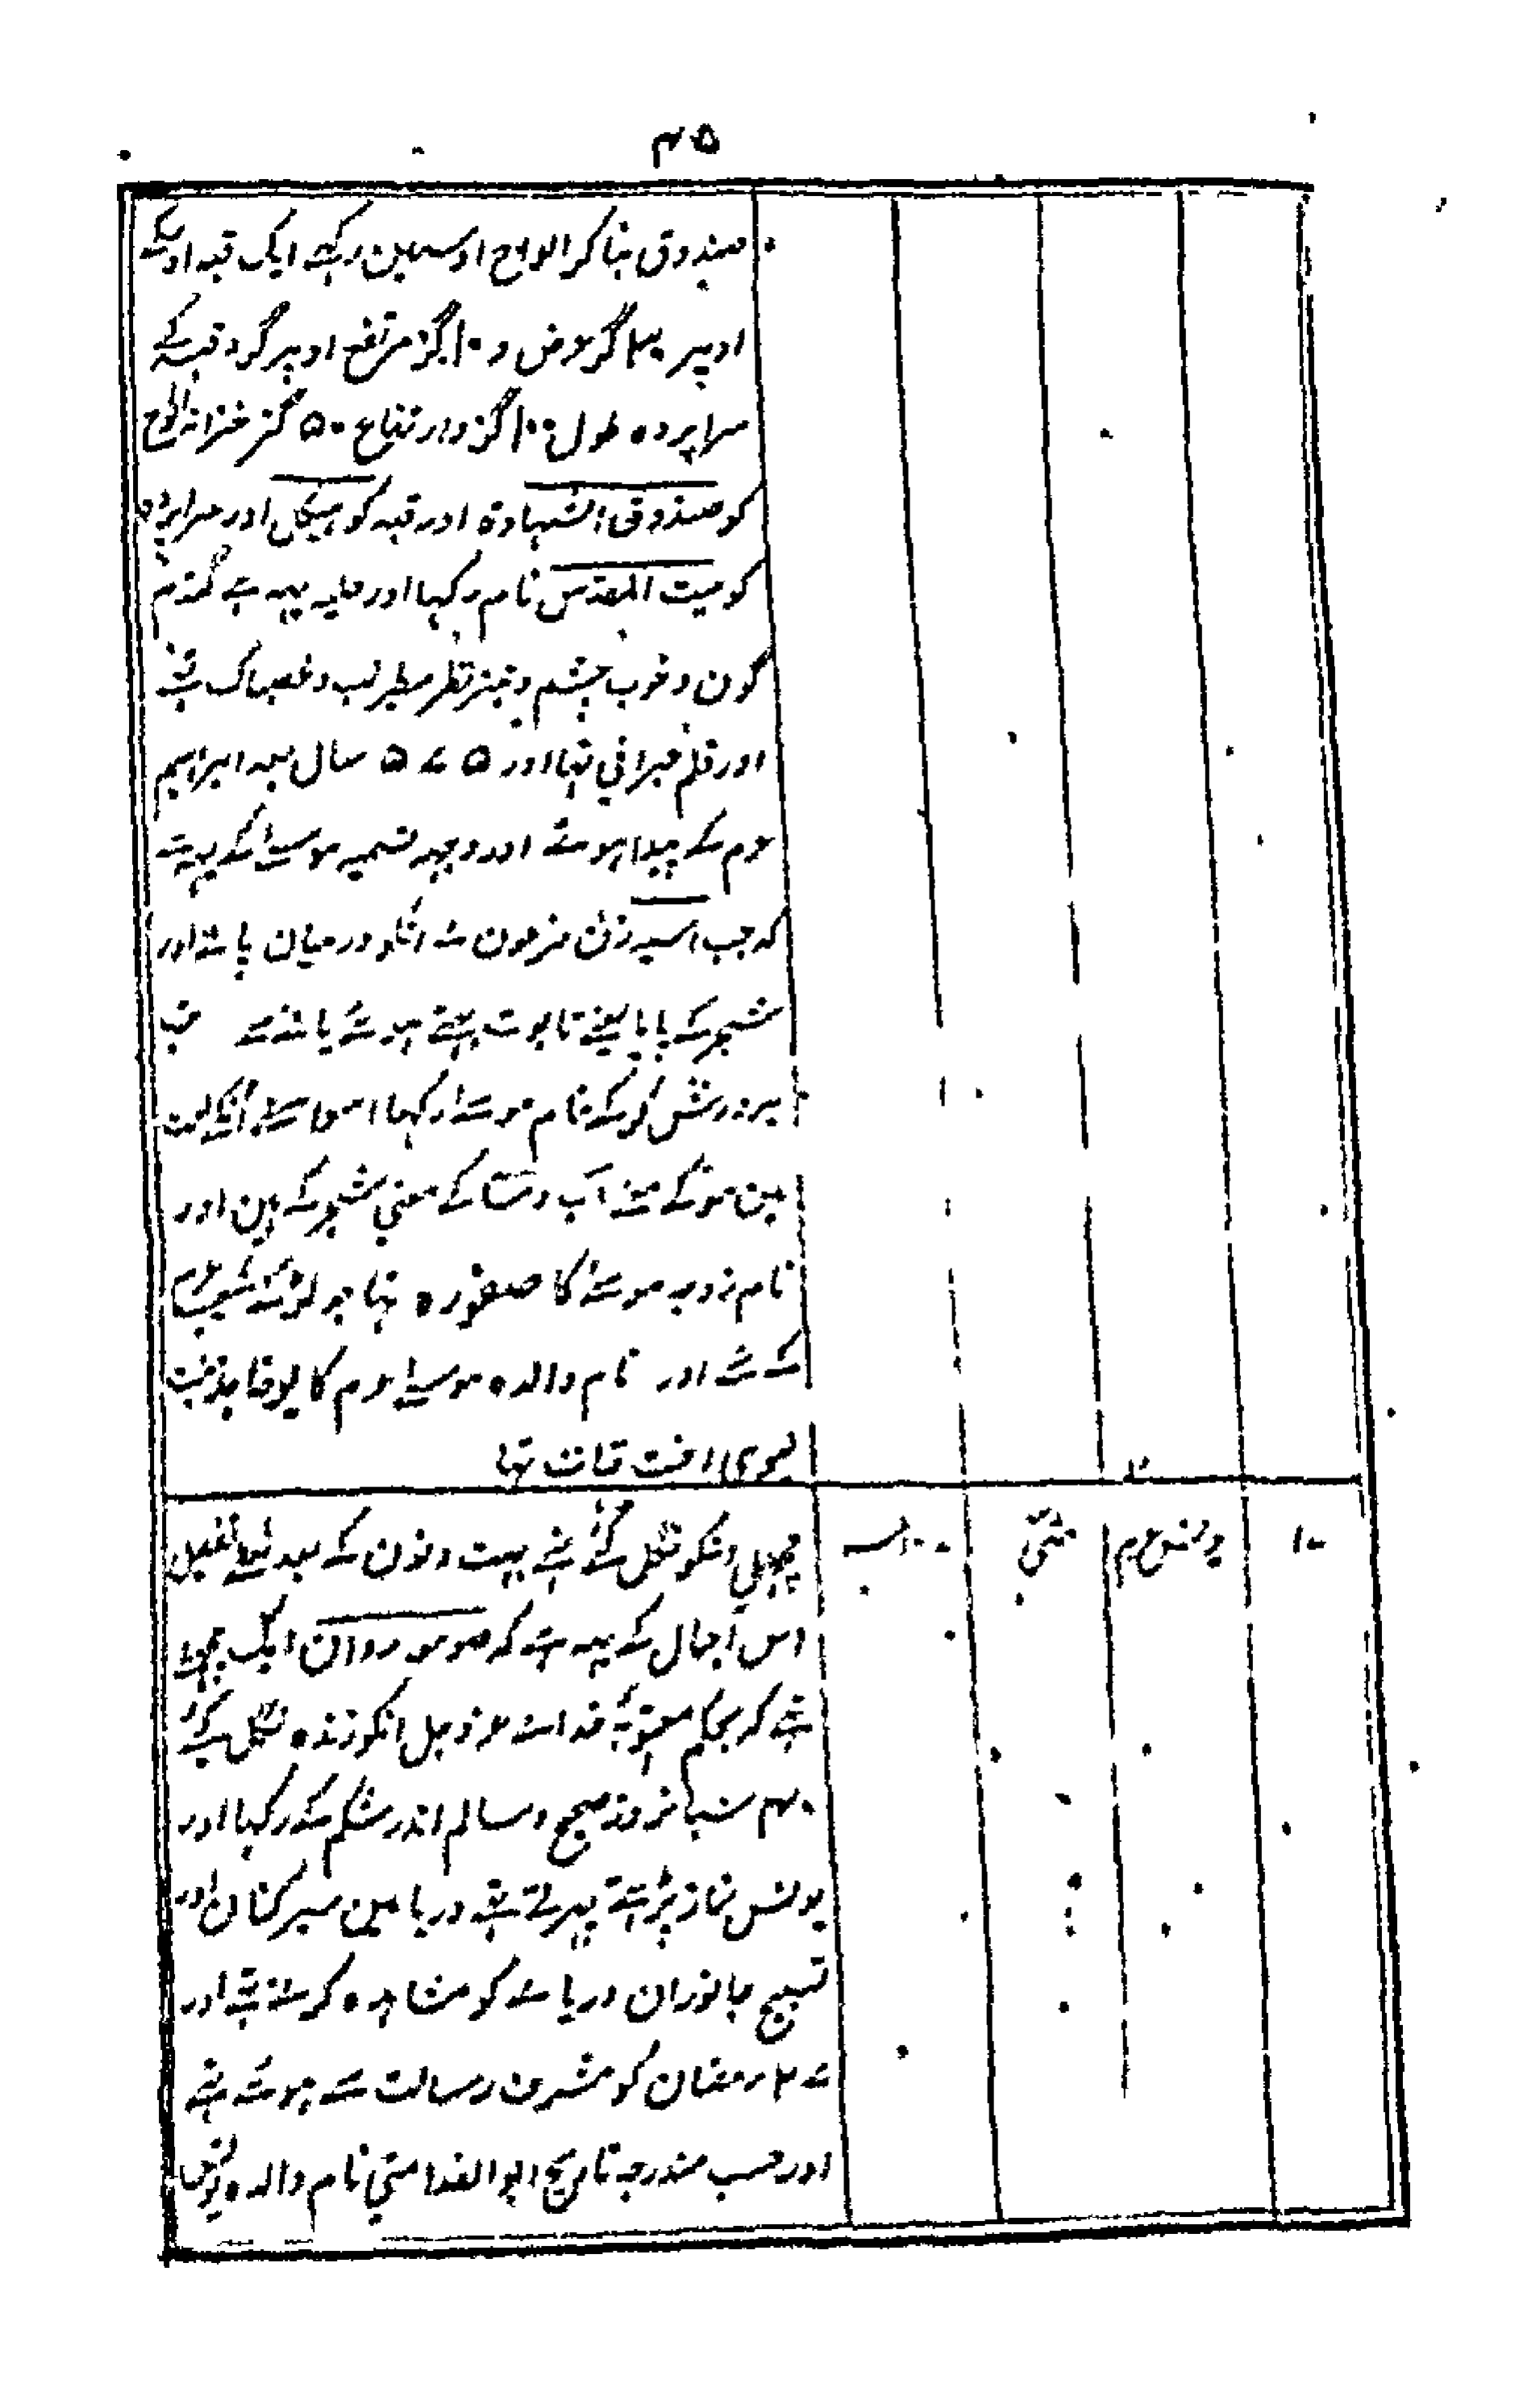 ۴۵
صندوق بنا کر الواح اوسمین رکہے ایک قبہ اوسکے
اوپر ۳۰ گز عرض و ۱۰ گز مرتفع اوپر گرد قبہ کے
سراپردہ طول ۱۰۰ گز و ارتفاع ۵۰ گز خزانہ الواح
کو صندوق الشہادة اور قبہ کو ہیکل اور سراپردہ
کو بیت المقدس نام رکہا اور حلیہ یہہ ہے گندم
گون و خوب چشم و تیز نظر سطبر لب و غصباک تہے
اور قلم عبرانی تہا اور ۵۷۵ سال بعد ابراہیم
ع م کے پیدا ہوئے اور وجہہ تسمیہ موسیٰ کے یہہ ہے
کہ جب آسیہ زن فرعون نے انکو درمیان پانے اور
شجر کے پایا یعنے تابوت بہتے ہوئے پانے سے
پرورش کر کے نام موسےٰ رکہا اس واسطے انکے لغت
مین مو کے معنے آب و سا کے معنی شجر کے ہین اور
نام زوجہ موسےٰ کا صفورہ تہا جو لڑکے شعیب ع م
کے تہے اور نام والدہ موسیٰ ع م کا یوخابذ بنت
لیوی اخت قاہث تہا
۱۰
یونس ع م
متّی
مچہلی انکو نگل گئے تہے بہت دنون کے بعد اوگلے تفصیل
اس اجمال کے یہہ ہے کہ موسوم روان ایک مچہلے
تہے کہ بحکم معتوبہ خداے عز و جل انکو زندہ نگل گئے
۴۰ شبانروز صحیح و سالم اندر شکم کے رکہا اور
یونس نماز پڑہتے پہرتے تہے دریا مین سیر کنان اور
تسبیح جانوران دریا ے کو مشاہدہ کرتے تہے اور
۲۷ رمضان کو مشرف رسالت سے ہوئے تہے
اور حسب مندرجہ تاریخ ابوالفدا متی نام والدہ یونس